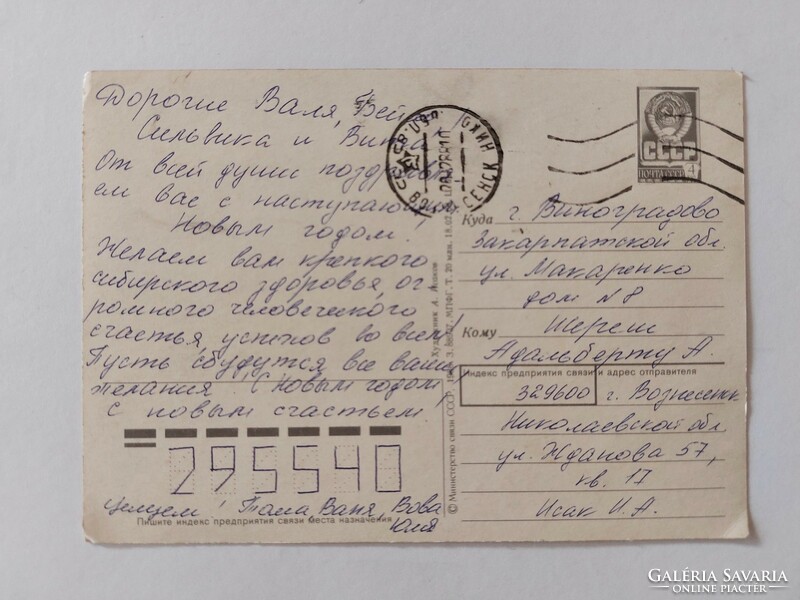 Дорогие Валя, Бей
Сильвика и Вита
От всей души поздравля
ем вас с наступающим
Новым годом!
Желаем вам крепкого
сибирского здоровья, ог
ромного человеческого
счастья, успехов во всём!
Пусть сбудутся все ваши
желания! С Новым годом,
с новым счастьем!
295540
Целуем! Тома Ваня, Вова
Юля
Пишите индекс предприятия связи места назначения
© Министерство связи СССР
Художник А.
СССР
ПОЧТА СССР
Куда г. Виноградово
Закарпатской обл.
ул. Макаренко
дом N 8
Кому Шереш
Адальберту А.
Индекс предприятия связи и адрес отправителя
329600 г. Вознесенск
Николаевской обл
ул. Жданова 57,
кв. 17
Исак И.А.
GALÉRIA SAVARIA
ONLINE PIACTÉR